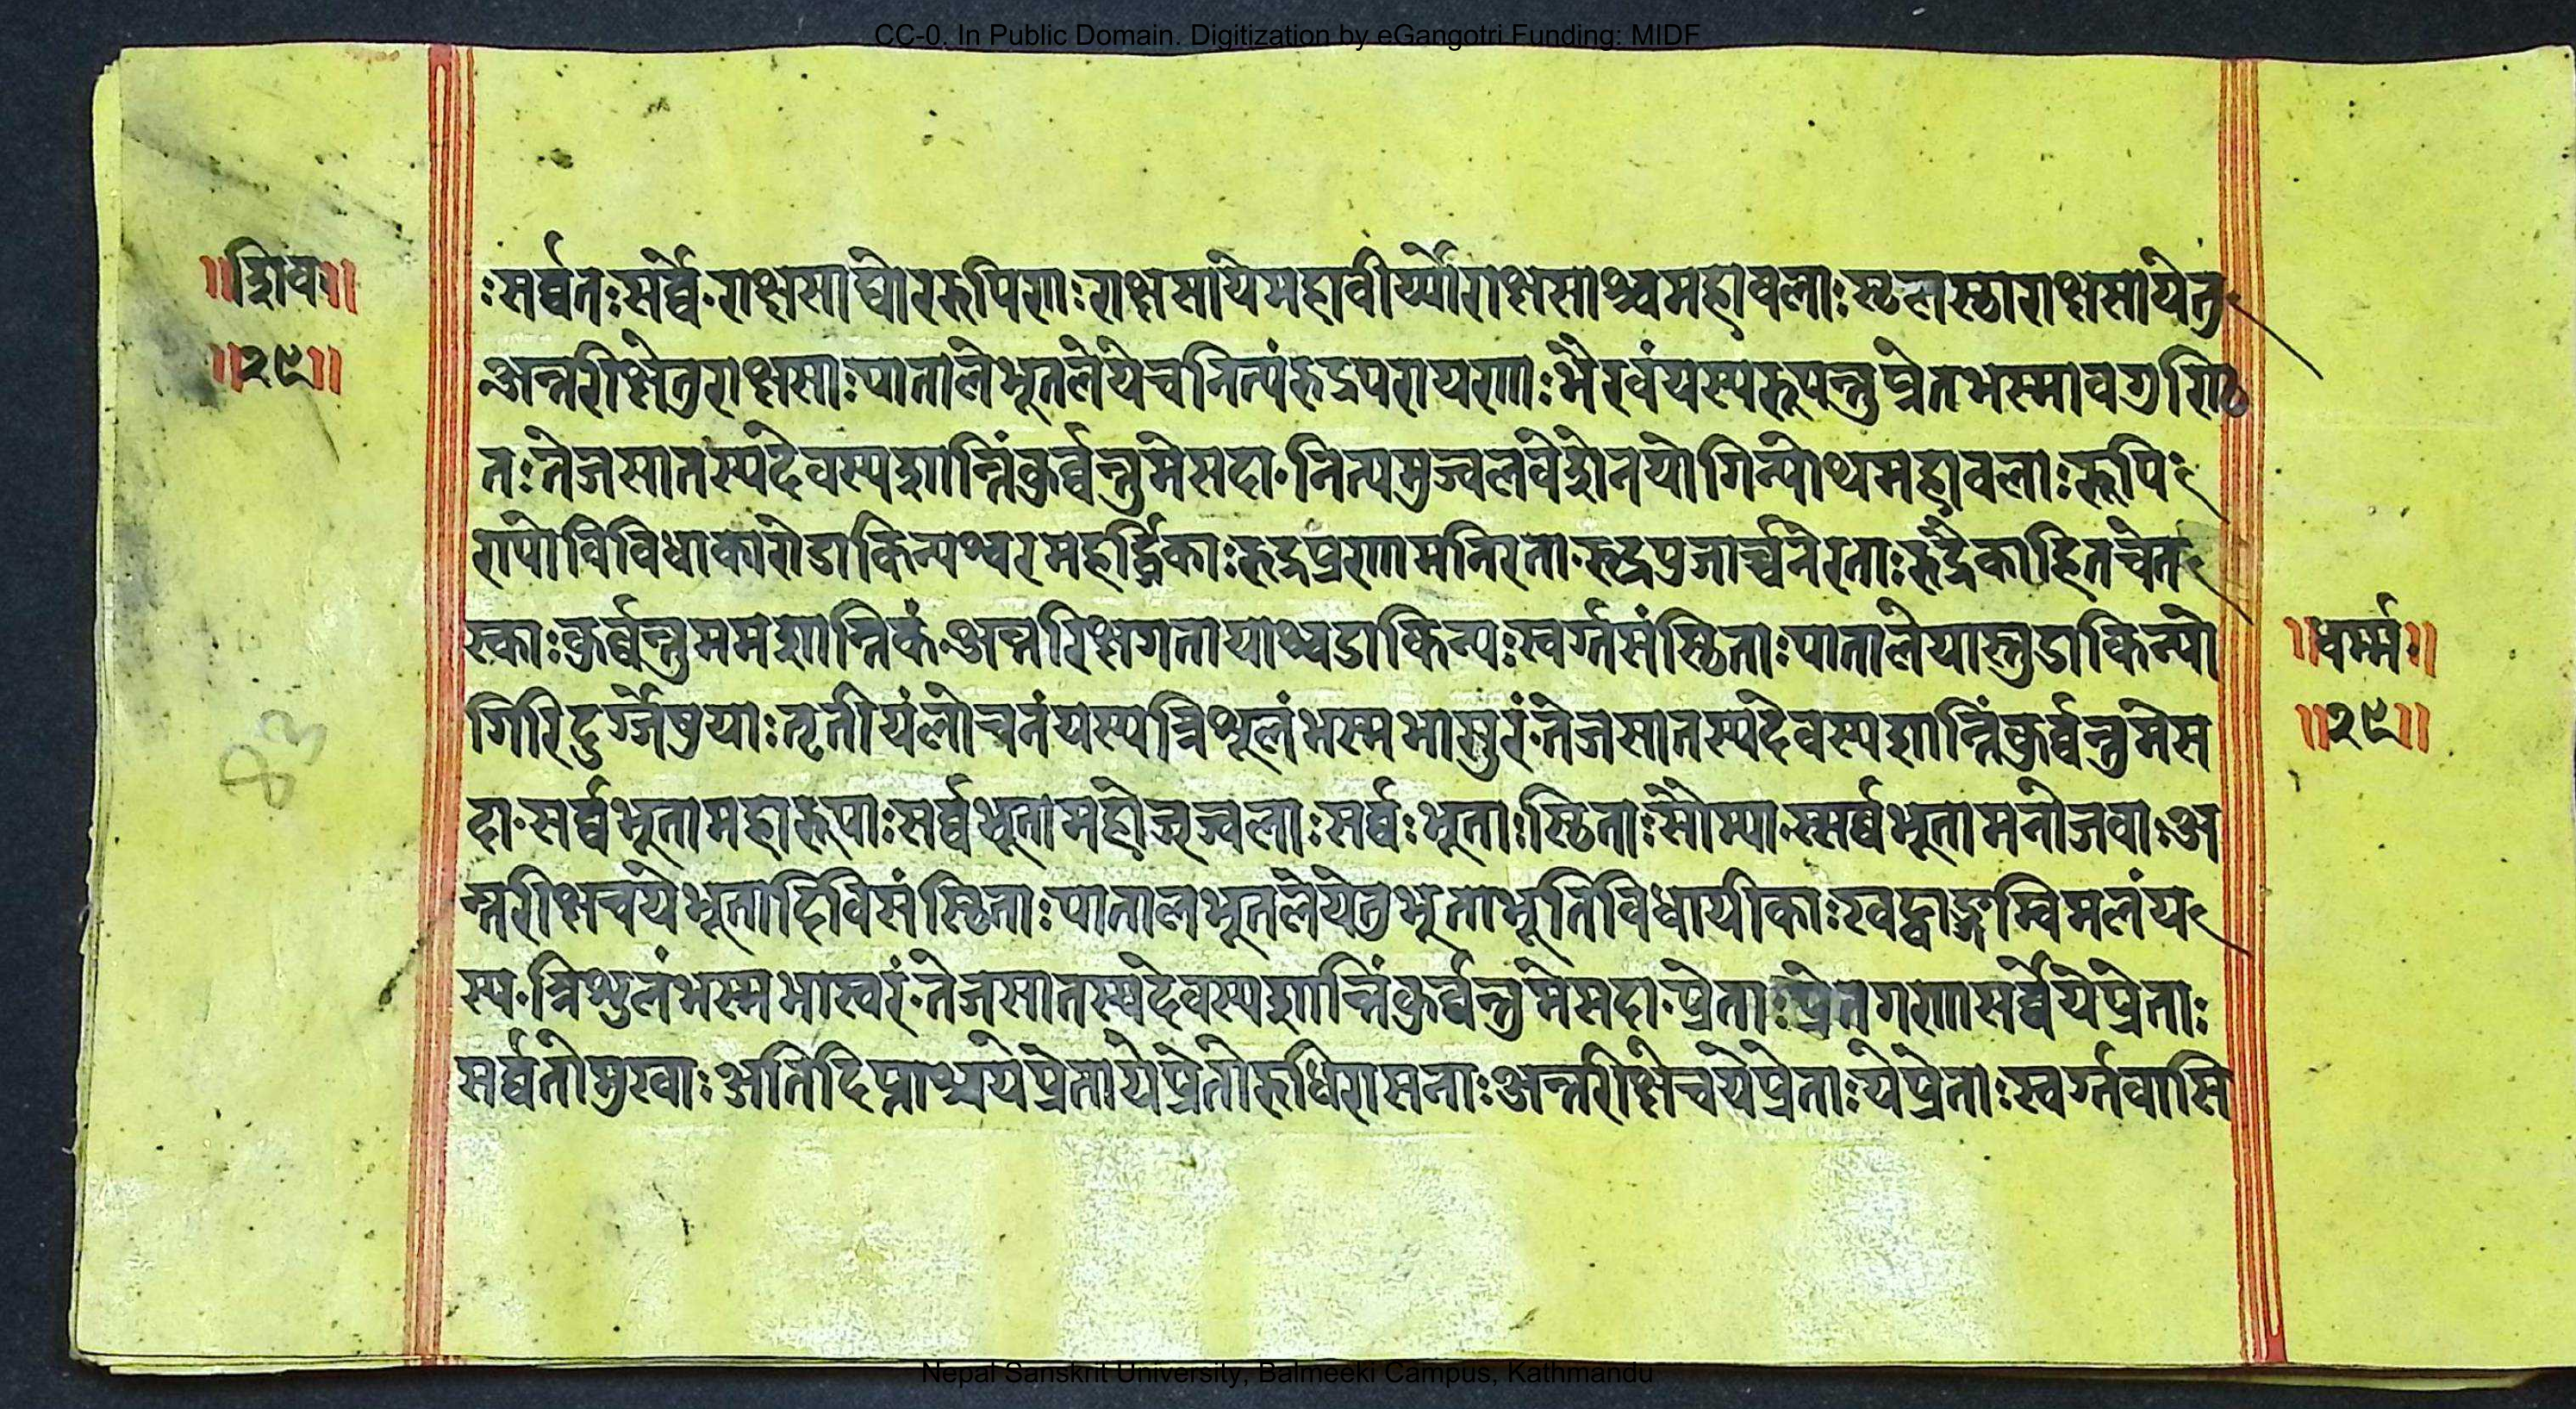 CC-0. In Public Domain. Digitization by eGangotri Funding: MIDF
॥शिव॥
॥२९॥
ःसर्व्वतःसर्व्वे·राक्षसाघोररुपिणाःराक्षसायेमहावीर्य्योराक्षसाश्चमहावलाःस्थलस्थाराक्षसायेतु
अन्तरीक्षेतुराक्षसाःपातालेभूतलेयेचनित्यंरुद्रपरायणाःभैरवंयस्यरूपन्तुप्रेतभस्मावगुण्ठि
तःतेजसातस्यदेवस्यशान्तिंकुर्व्वन्तुमेसदा·नित्यमुज्वलवेशेनयोगिन्योथमहावलाःरूपि
ण्योविविधाकारोडाकिन्यश्चरमहर्द्धिकाःरुद्रप्रणामनिरता·रुद्रपुजार्च्चनेरताःरुद्रैकाहितचेत
स्काःकुर्व्वन्तुममशान्तिकं·अन्तरिक्षगतायाश्चडाकिन्यःस्वर्ग्गसंस्थिताःपातालेयास्तुडाकिन्यो
गिरिदुर्ग्गेषुयाःतृतीयंलोचनंयस्यत्रिशूलंभस्मभासुरं·तेजसातस्यदेवस्यशान्तिंकुर्व्वन्तुमेस
दा·सर्व्वभूतामहारूपाःसर्व्वभूतामहोज्ज्वलाःसर्व्वःभूताःस्थिताःसौम्या·स्सर्व्वभूतामनोजवाःअ
न्तरीक्षचयेभूतादिविसंस्थिताःपातालभूतलेयेतुभुताभूतिविधायीकाःखट्वाङ्गम्विमलंय
स्य·त्रिशुलंभस्मभास्वरं·तेजसातस्यदेवस्यशान्तिंकुर्व्वन्तुमेसदा·प्रेताःप्रेतगणासर्व्वेयेप्रेताः
सर्व्वतोमुखाःअतिदिप्ताश्चयेप्रेतायेप्रेतोरुधिरासनाःअन्तरीक्षेचयेप्रेताःयेप्रेताःस्वर्ग्गवासि
॥धर्म्म॥
॥२९॥
83
Nepal Sanskrit University, Balmeeki Campus, Kathmandu